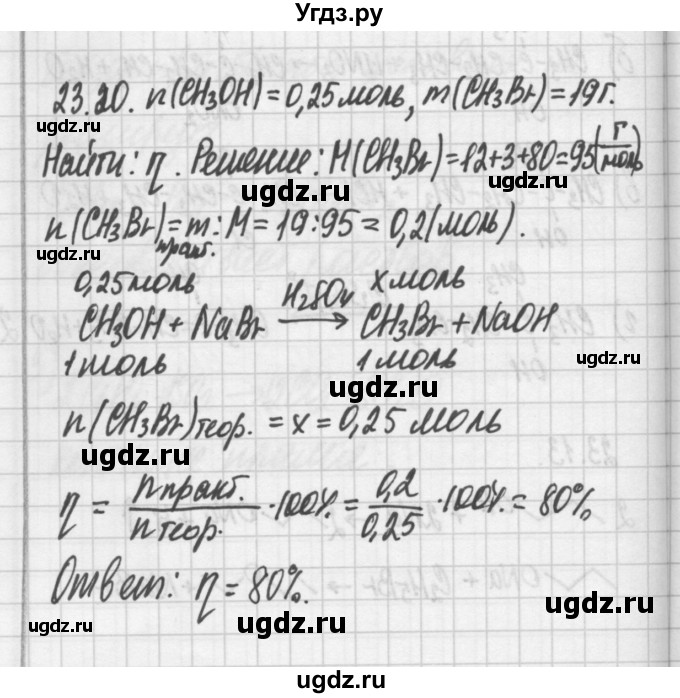 Угдз.ру
23.20. n(CH3OH) = 0,25 моль, m(CH3Br) = 19 г.
ugdz.ru ugdz.ru
Найти: η. Решение: M(CH3Br) = 12+3+80 = 95 (г/моль)
ugdz.ru ugdz.ru
n(CH3Br)практ. = m : M = 19 : 95 = 0,2 (моль).
ugdz.ru
0,25 моль x моль
CH3OH + NaBr H2SO4→ CH3Br + NaOH
ugdz.ru
1 моль 1 моль
ugdz.ru
n(CH3Br)теор. = x = 0,25 моль
ugdz.ru
η = n практ. / n теор. · 100% = 0,2 / 0,25 · 100% = 80%
ugdz.ru
Ответ: η = 80%.
ugdz.ru
ugdz.ru ugdz.ru
Угдз.ру